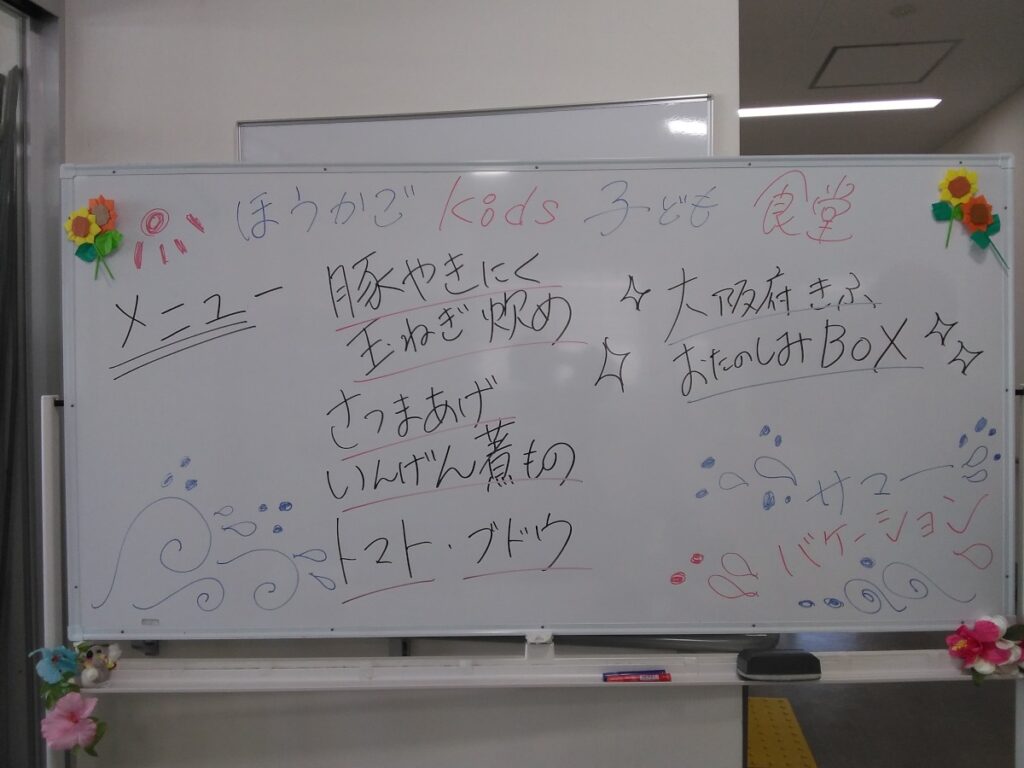 ほうかご Kids 子ども 食堂
メニュー
豚やきにく
玉ねぎ炒め
さつまあげ
いんげん煮もの
トマト・ブドウ
大阪府きふ
おたのしみBOX
サマー
バケーション